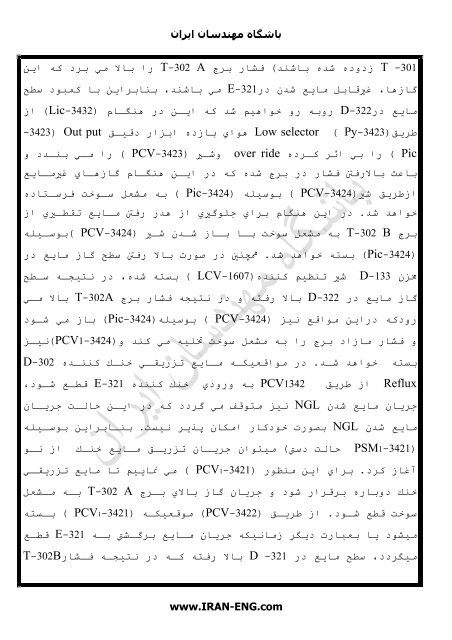 باشگاه مهندسان ایران
T -301 زدوده شده باشند) فشار برج T-302 A را بالا می برد که این
گازها، غیرقابل مایع شدن درE-321 می باشند، بنابراین با کمبود سطح
مایع درD-322 روبه رو خواهیم شد که این در هنگام (Lic-3432) از
طریق(Py-3423 ) Low selector هوای بازده ابزار دقیق Out put (3423-
Pic ) را بی اثر کرده over ride وشیر (PCV-3423 ) را می بندد و
باعث بالارفتن فشار در برج شده که در این هنگام گازهای غیرمایع
ازطریق شیر(PCV-3424 ) بوسیله (Pic-3424 ) به مشعل سوخت فرستاده
خواهد شد. در این هنگام برای جلوگیری از هدر رفتن مایع تقطیری از
برج T-302 B به مشعل سوخت با باز شدن شیر (PCV-3424 )بوسیله
(Pic-3424) بسته خواهد شد. همچنین در صورت بالا رفتن سطح گاز مایع در
مخزن D-133 شیر تنظیم کننده(LCV-1607 ) بسته شده، در نتیجه سطح
گاز مایع در D-322 بالا رفته و در نتیجه فشار برج T-302A بالا می
رودکه دراین مواقع نیز (PCV-3424 ) بوسیله(Pic-3424) باز می شود
و فشار مازاد برج را به مشعل سوخت تخلیه می کند و(PCV1-3424)نیز
بسته خواهد شد. در مواقعیکه مایع تزریقی خنک کننده D-302
Reflux از طریق PCV1342 به ورودی خنک کننده E-321 قطع شود،
جریان مایع شدن NGL نیز متوقف می گردد که در این حالت جریان
مایع شدن NGL بصورت خودکار امکان پذیر نیست. بنابراین بوسیله
(PSM1-3421 حالت دستی) میتوان جریان تزریق مایع خنک از نو
آغاز کرد. برای این منظور (PCV1-3421 ) می نماییم تا مایع تزریقی
خنک دوباره برقرار شود و جریان گاز بالای برج T-302 A به مشعل
سوخت قطع شود. از طریق (PCV-3422) موقعیکه (PCV1-3421 ) بسته
میشود یا بعبارت دیگر زمانیکه جریان مایع برگشتی به E-321 قطع
میگردد، سطح مایع در D -321 بالا رفته که در نتیجه فشارT-302B
باشگاه مهندسان ایران
www.IRAN-ENG.com